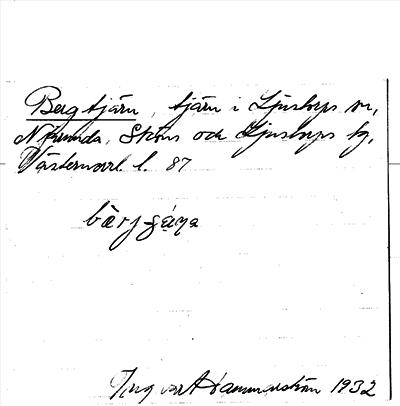 Bergtjärn, tjärn i Ljustorps sn,
Njurunda, Sköns och Ljustorps tg,
Västernorrl. l. 87
bærj-
Ingvar Hammarström 1932